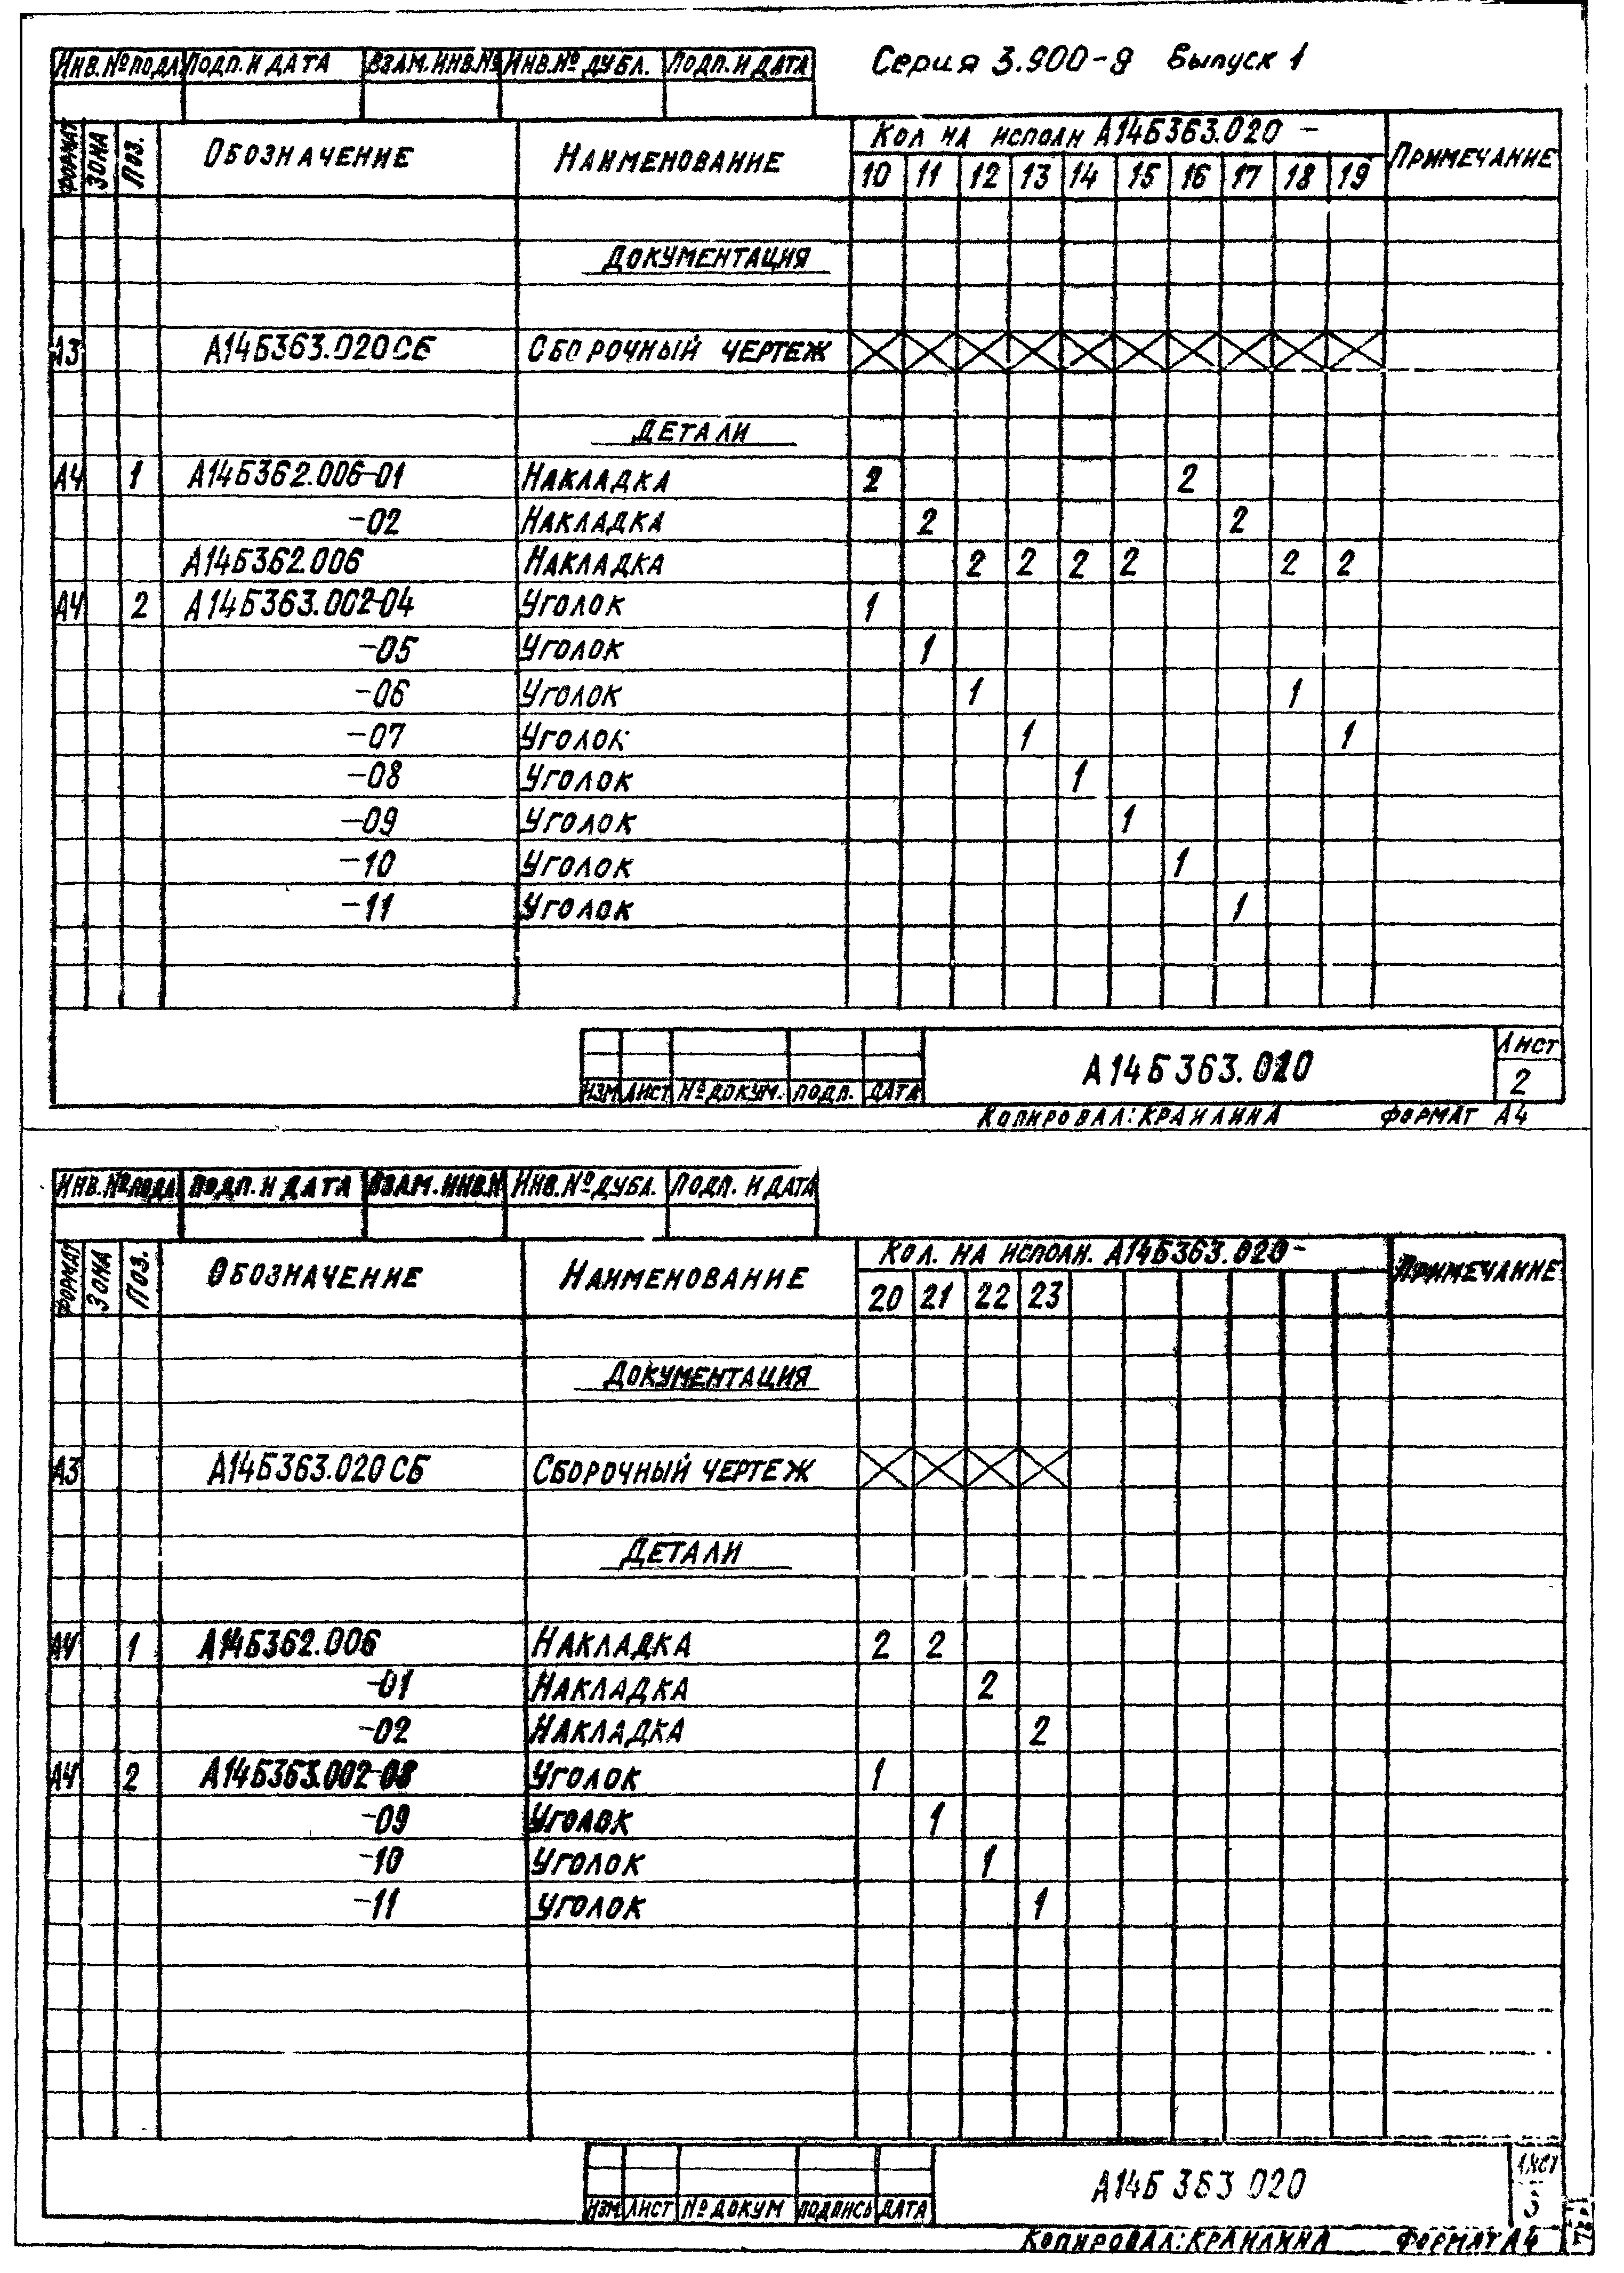 Серия 3.900-9 Выпуск 1
Инв.№подл. Подп. и дата Взам.инв.№ Инв.№ дубл. Подп. и дата
Формат Зона Поз. Обозначение Наименование Кол на исполн А14Б363.020 - Примечание
10 11 12 13 14 15 16 17 18 19
Документация
А3 А14Б363.020СБ Сборочный чертеж
Детали
А4 1 А14Б362.006-01 Накладка 2 2
-02 Накладка 2 2
А14Б362.006 Накладка 2 2 2 2 2 2
А4 2 А14Б363.002-04 Уголок 1
-05 Уголок 1
-06 Уголок 1 1
-07 Уголок 1 1
-08 Уголок 1
-09 Уголок 1
-10 Уголок 1
-11 Уголок 1
А14Б363.020 Лист
2
Изм Лист № докум. подп. Дата
Копировал: Краилина Формат А4
Инв.№подл. Подп. и дата Взам.инв.№ Инв.№дубл. Подп. и дата
Формат Зона Поз. Обозначение Наименование Кол. на исполн. А14Б363.020- Примечание
20 21 22 23
Документация
А3 А14Б363.020 СБ Сборочный чертеж
Детали
А4 1 А14Б362.006 Накладка 2 2
-01 Накладка 2
-02 Накладка 2
А4 2 А14Б363.002-08 Уголок 1
-09 Уголок 1
-10 Уголок 1
-11 Уголок 1
А14Б 363 020 Лист
3
Изм Лист № докум Подпись Дата
Копировал: Краилина Формат А4